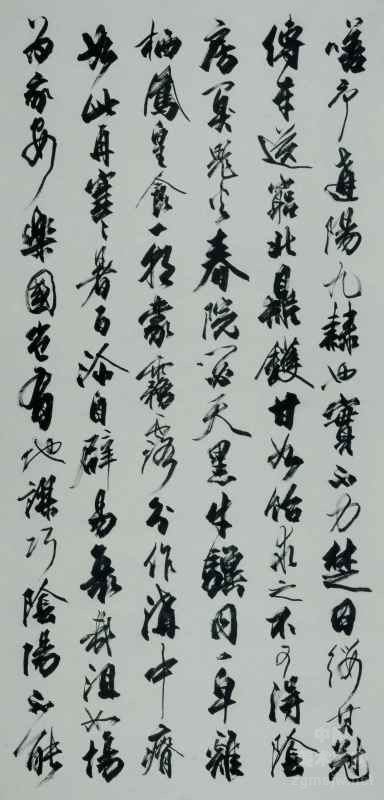 嗟予遘陽九隸也實不力楚囚纓其冠
傳車送窮北鼎鑊甘如飴求之不可得陰
房闃鬼火春院閟天黑牛驥同一皁雞
栖鳳皇食一朝蒙霧露分作溝中瘠
如此再寒暑百沴自辟易哀哉沮洳場
為我安樂國豈有他謬巧陰陽不能